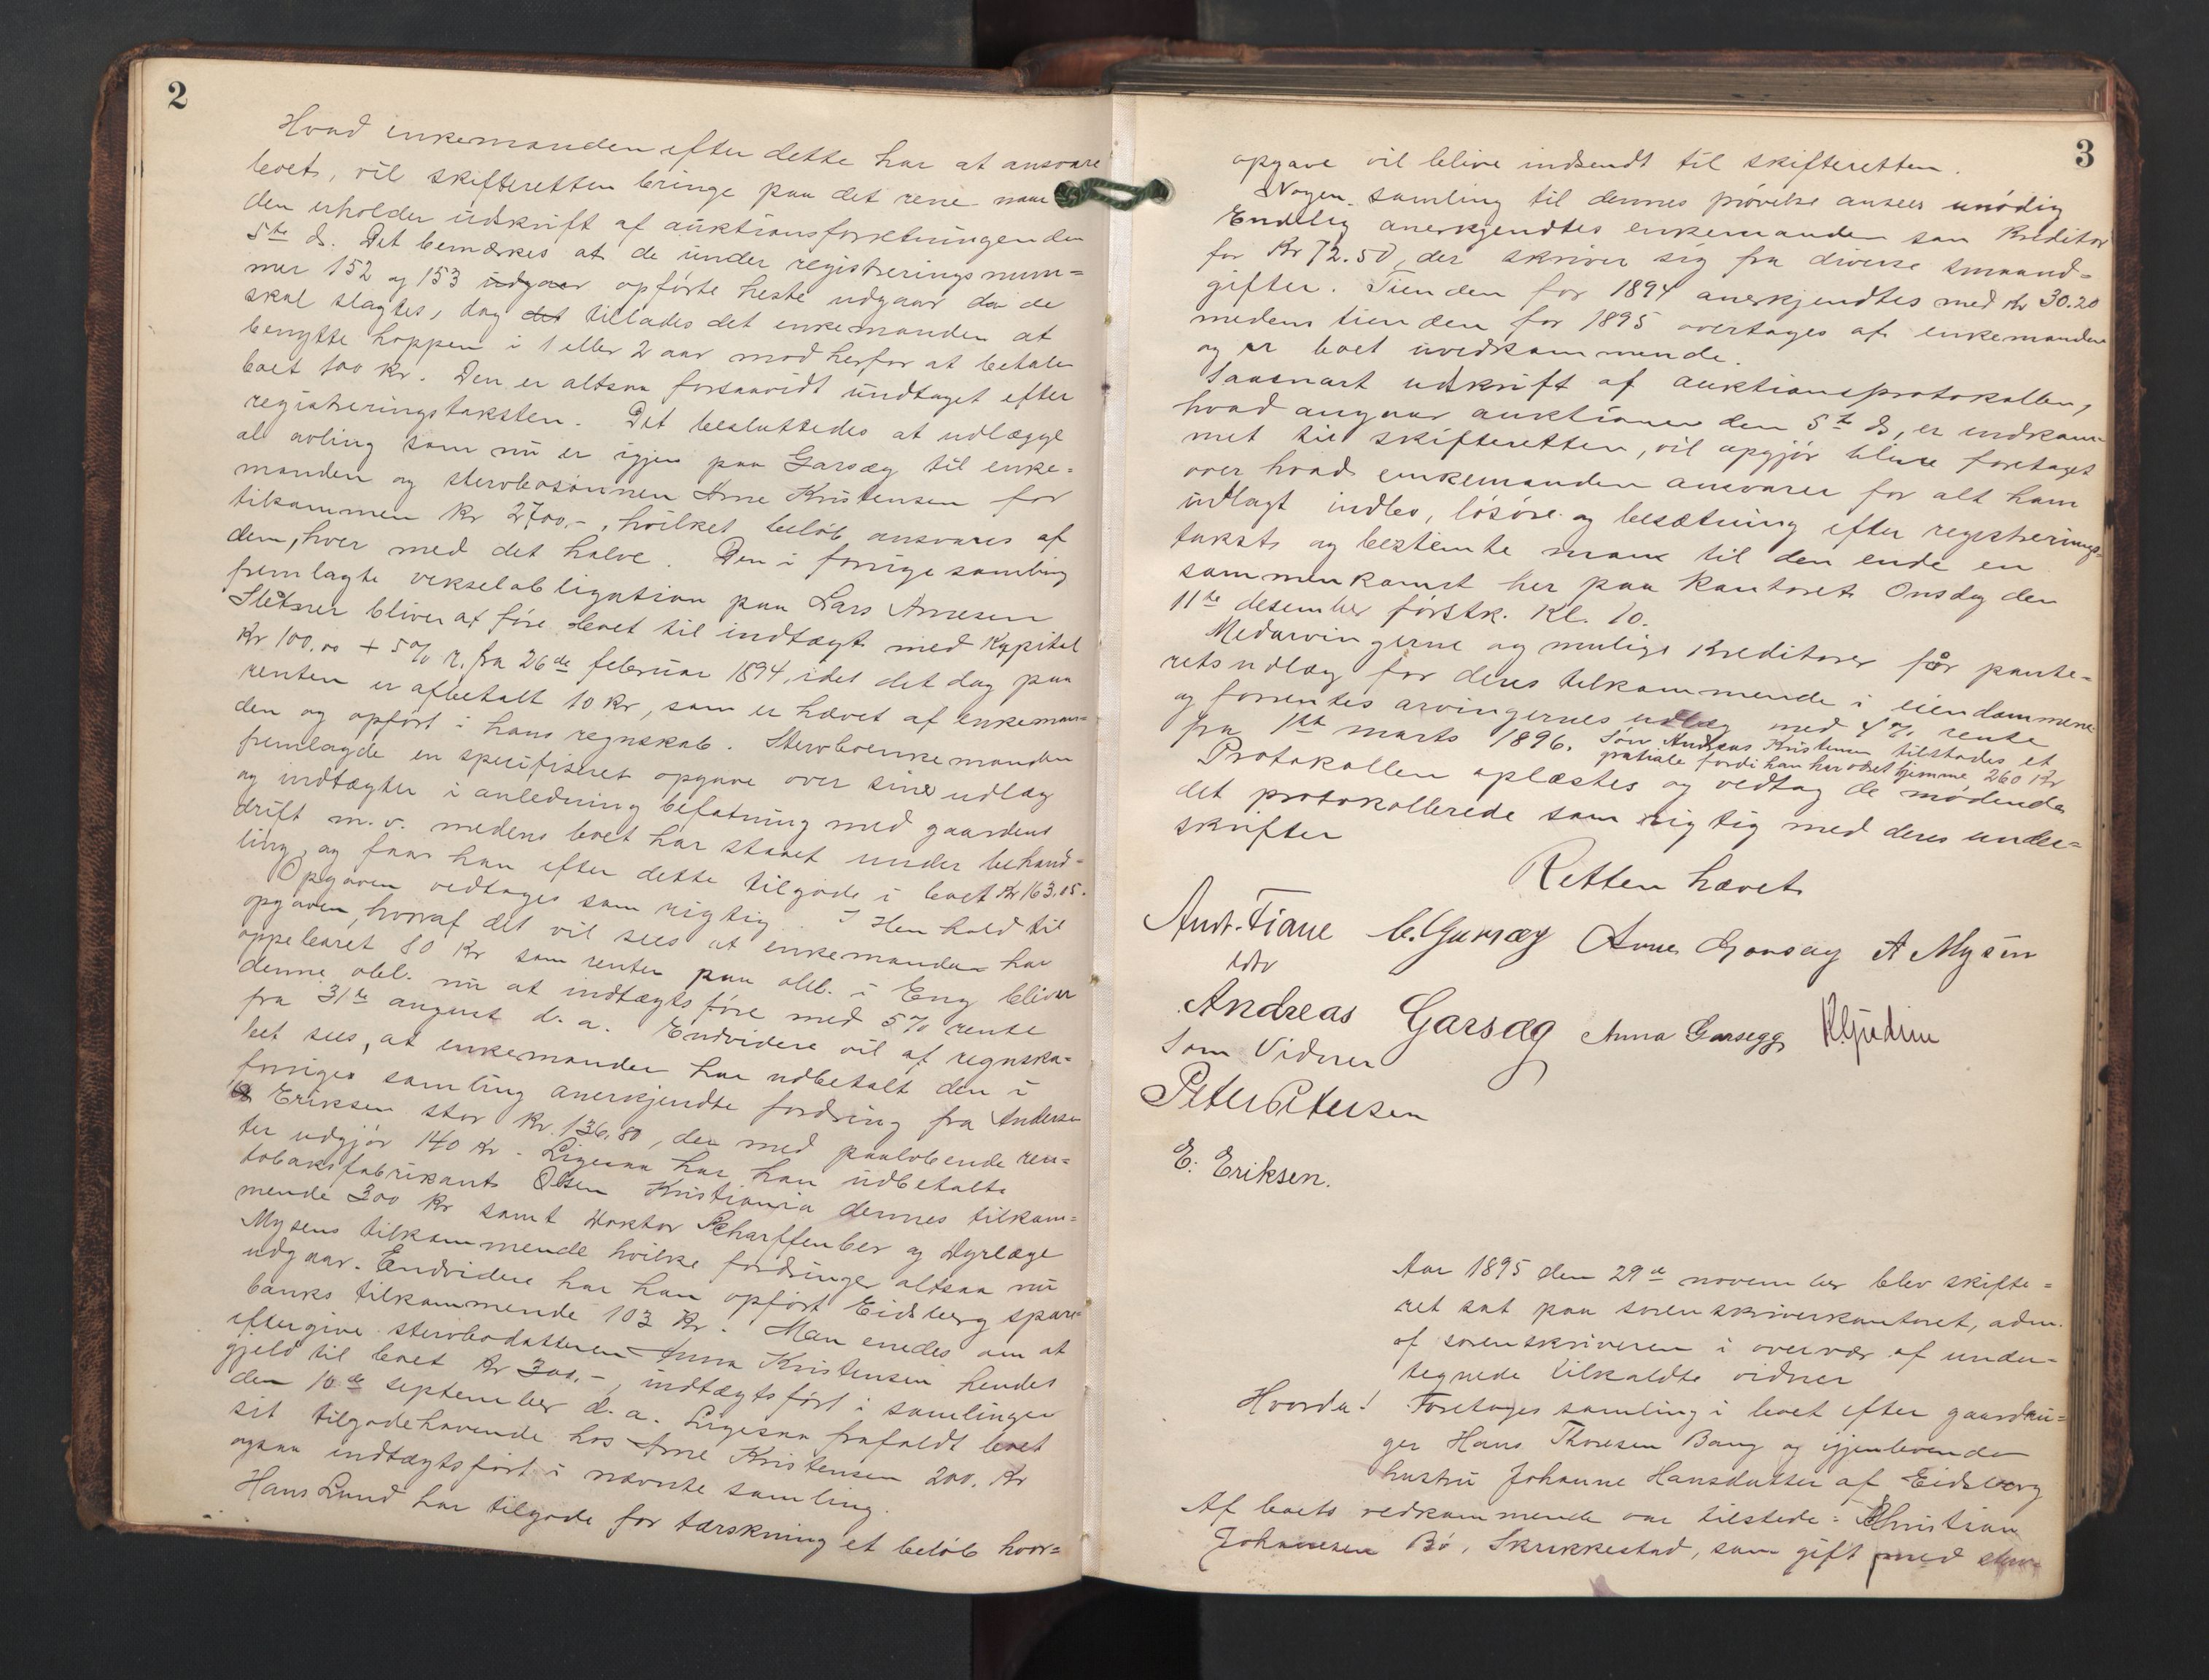 2
Hvad enkemanden efter dette har at ansvare
boet, vil skifteretten bringe paa det rene naar
den erholder udskrift af auktionsforretningen den
5te ds. Det bemærkes at de under registreringsnum=
mer 152 og 153 udgaar opførte heste udgaar da de
skal slagtes, dog det tillades det enkemanden at
benytte hoppen i 1 eller 2 aar mod herfor at betale
boet 100 Kr. Den er altsaa forsaavidt undtaget efter
registreringstaksten. Det besluttedes at udlægge
al avling som nu er igjen paa Garsæg til enke=
manden og stervbosønnen Arne Kristensen for
tilsammen Kr 2700.-, hvilket beløb ansvares af
dem, hver med det halve. Den i forrige samling
fremlagte vekselobligation paa Lars Arnesen
Sletner bliver at føre boet til indtægt med Kapital
Kr 100.00 + 5% r. fra 26de februar 1894, idet det dog paa
renten er afbetalt 10 Kr, som er hævet af enkeman=
den og opført i hans regnskab. Stervboenkemanden
fremlagde en specifiseret opgave over sine udlæg
og indtægter i anledning befatning med gaardens
drift m. v. medens boet har staaet under behand=
ling, og faar han efter dette tilgode i boet Kr 163.05.
Opgaven vedtages som rigtig. I Henhold til
opgaven, hvoraf det vil sees at enkemanden har
oppebaaret 80 Kr som renter paa obl. i Eng bliver
denne obl. nu at indtægtsføre med 5% rente
fra 31te august d. a. Endvidere vil af regnska=
bet sees, at enkemanden har udbetalt den i
forriges samling anerkjendte fordring fra Andersen
& Eriksen stor Kr. 136.80, der med paaløbende ren=
ter udgjør 140 Kr. Ligesaa har han udbetalt
tobaksfabrikant Olsen Kristiania dennes tilkom=
mende 300 Kr samt Doktor Scharffenber og Dyrlæge
Mysens tilkommende hvilke fordringer altsaa nu
udgaar. Endvidere har han opført Eidsberg spare=
banks tilkommende 103 Kr. Man enedes om at
eftergive stervbodatteren Anna Kristensen hendes
gjeld til boet Kr 300.-, indtægtsført i samlingen
den 10de september d. a. Ligesaa frafaldt boet
sit tilgodehavende hos Arne Kristensen 200. Kr
ogsaa indtægtsført i nævnte samling.
Hans Lund har tilgode for tærskning et beløb hvor=
3
opgave vil blive indsendt til skifteretten.
Nogen samling til dennes prøvelse ansees unødig
Endelig anerkjendtes enkemanden som Kreditor
for Kr 72.50, der skriver sig fra diverse smaaud=
gifter. Tienden for 1894 anerkjendtes med Kr 30.20
medens tienden for 1895 overtages af enkemanden
og er boet uvedkommende.
Saasnart udskrift af auktionsprotokollen,
hvad angaar auktionen den 5te ds, er indkom=
met til skifteretten, vil opgjør blive foretaget
over hvad enkemanden ansvarer for alt ham
udlagt indbo, løsøre og besætning efter registrerings=
takst og bestemte man til den ende en
sammenkomst her paa Kontoret Onsdag den
11te desember førstk. Kl. 10.
Medarvingerne og mulige Kreditorer får pante=
retsudlæg for deres tilkommende i eiendommene
og forrentes arvingernes udlæg med 4% rente
fra 1ste marts 1896. Søn Andreas Kristensen tilstodes et
prætiale fordi han har været hjemme 260 Kr
Protokollen oplæstes og vedtog de mødende
det protokollerede som rigtig med deres under=
skrifter
Retten hævet
Andr. Fiane C. Garsæg Arne Garsæg A Mysen
Andreas Garsæg Anna Garsegg
Som Vidner
Peter Petersen
E. Eriksen.
Aar 1895 den 29de november blev skifte=
ret sat paa sorenskriverkontoret, adm.
af sorenskriveren i overvær af under=
tegnede tilkaldte vidner
Hvorda! Foretages samling i boet efter gaardbru=
ger Hans Thoresen Bang og igjenlevende
hustru Johanne Hansdatter af Eidsberg
Af boets vedkommende var tilstede: Christian
Johannesen Bø, Skrikkestad, som gift med sterv=